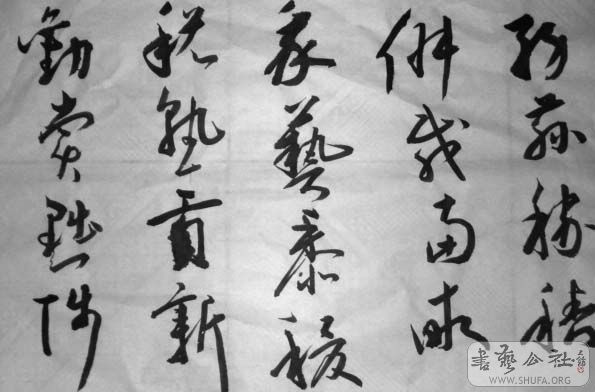 務茲稼穡
俶載南畝
我藝黍稷
稅熟貢新
勸賞黜陟
書藝公社
WWW.SHUFA.ORG